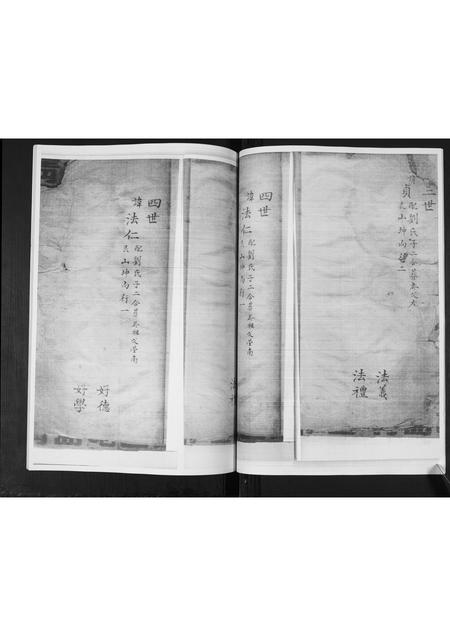 三世
諱貞配劉氏子二合葬
艮山坤向
二
法義
法禮
四世
諱法仁配劉氏子二合葬
艮山坤向行一
法
禮
四世
諱法仁配劉氏子二合葬
艮山坤向行一
好德
好學